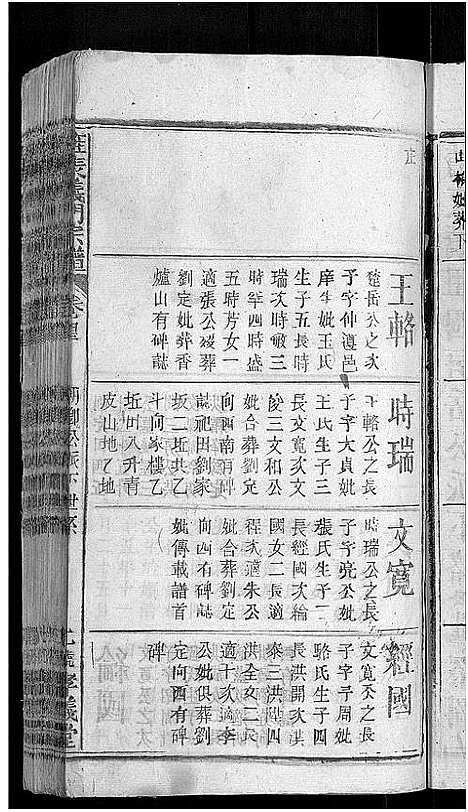 山
妣葬下
正
王輅
楚岳公之次
子字仲遵邑
庠生妣王氏
生子五長時
瑞次時敏三
時罕四時盛
五時芳女一
適張公葵葬
劉定妣葬香
爐山有碑誌
時瑞
王輅公之長
子字大貞妣
王氏生子三
長文寬次文
俊三文和公
妣合葬劉定
向西南有碑
誌祀田劉家
坂二坵共乙
斗向家樓乙
坵叶八升青
皮山地乙地
文寬
時瑞公之長
子字亮公妣
張氏生子二
長經國次綸
國女二長適
程次適朱公
妣合葬劉定
向西有碑誌
妣傳載譜首
經國
文寬公之長
子字子周妣
駱氏生子四
長洪開次洪
泰三洪陞四
洪全女二長
適十次適李
公妣俱葬劉
定向西有碑
碑
義門宗譜
卷
公派下世系
七號孝義堂